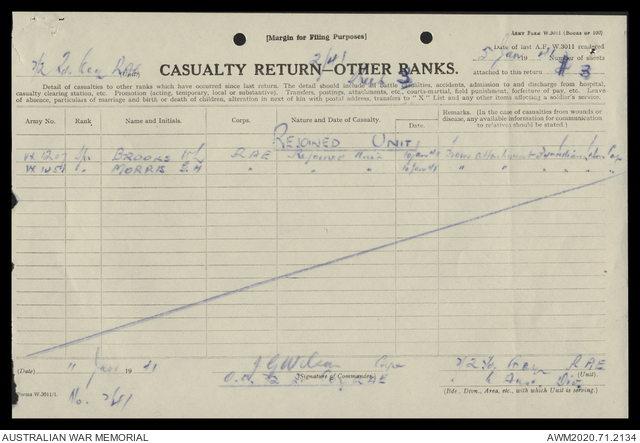 [Margin for Filing Purposes]
ARMY FORM W.3011 (BOOKS OF 100)
Date of last A.F. W.3011 rendered
5 Jan 1941
Number of sheets
attached to this return # 3
2/2 Coy RAE (Unit)
2/41
CASUALTY RETURN—OTHER RANKS.
Detail of casualties to other ranks which have occurred since last return. The detail should include all battle casualties, accidents, admission to and discharge from hospital,
casualty clearing station, etc. Promotion (acting, temporary, local or substantive). Transfers, postings, attachments, etc., courts-martial, field punishment, forfeiture of pay, etc. Leave
of absence, particulars of marriage and birth or death of children, alteration in next of kin with postal address, transfers to "X" List and any other items affecting a soldier's service.
Army No. Rank Name and Initials. Corps. Nature and Date of Casualty. Date. Remarks. (In the case of casualties from wounds or
disease, any available information for communication
to relatives should be stated.)
REJOINED UNIT
Spr BROOKS RAE Rejoined Unit From attachment
MORRIS " " " "
(Date) " Jan 1941
J G Wilson Capt
(Signature of Commander)
O.C. 2/2 RAE
2/2 RAE
(Unit).
Aust Div
(Bde., Divn., Area, etc., with which Unit is serving.)
Forms W.3011/1.
No. 2/41
AUSTRALIAN WAR MEMORIAL
AWM2020.71.2134